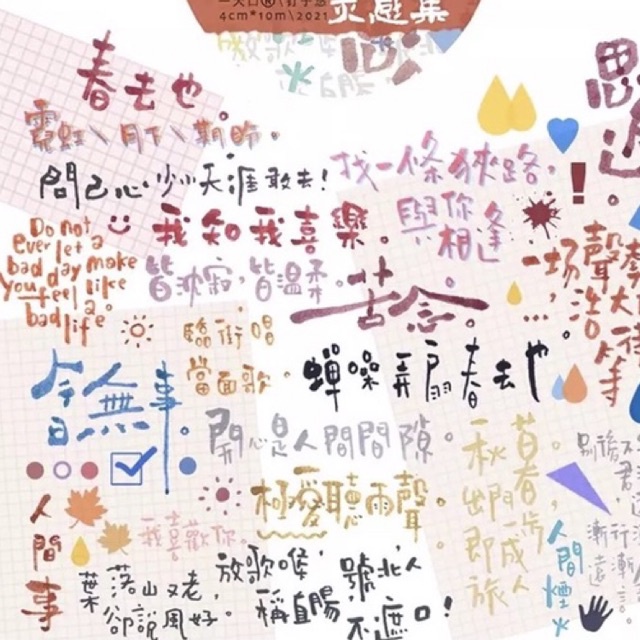 灵感集
4cm*10m\2021
春去也。
霓虹\月下\期盼。
問己心 少小天涯敢去!
找一條狹路,
與你
相逢
我知我喜樂。
Do not
ever let a
bad day make
You feel like
bad life
皆沈寂,皆溫柔。
苦念。
一场
聲
臨街唱
當面歌。
蟬噪弄扇春去也。
今日無事。
開心是人間間隙。
極愛聽雨聲。
秋暮
出門
即成
旅人
人間事
我喜歡你。
葉落山又老,
卻說風好。
放歌喉,
稱自賜
號北人
不遮口!
人間煙火
别後不
漸行漸
漸遠